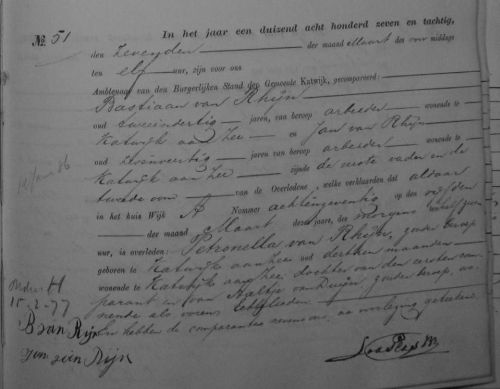 № 51
In het jaar een duizend acht honderd zeven en tachtig,
den zevenden der maand Maart des voor middags
ten elf ure, zijn voor ons
Ambtenaar van den Burgerlijken Stand der Gemeente Katwijk, gecompareerd:
Bastiaan van Rhijn
oud tweeendertig jaren, van beroep arbeider wonende te
Katwijk aan Zee en Jan van Rhijn
oud jaren, van beroep arbeider wonende te
Katwijk aan Zee zijnde de eerste vader en de
tweede oom van de Overledene, welke verklaarden dat aldaar
in het huis Wijk A Nommer achtenzeventig op den vijfden
der maand Maart dezes jaars, des morgens ten half zeven
ure, is overleden: Petronella van Rhijn, zonder beroep
geboren te Katwijk aan Zee oud dertien maanden
wonende te Katwijk aan Zee dochter van den eersten com-
parant en van Maltje van Duijn, zonder beroep, wo-
nende als voren
En hebben de comparanten nevens ons, na voorlezing geteekend.
15-2-77
B van Rijn
Jan van Rijn